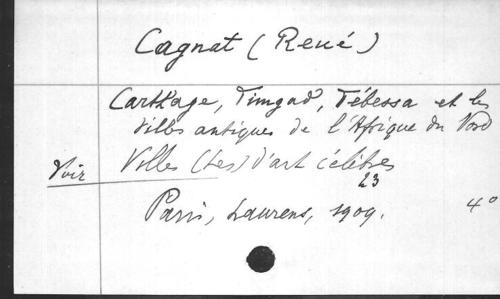 Cagnat (René)
Carthage, Timgad, Tébessa et les
villes antiques de l'Afrique du Nord
Voir Villes (Les) d'art célèbres
23
Paris, Laurens, 1909. 4°